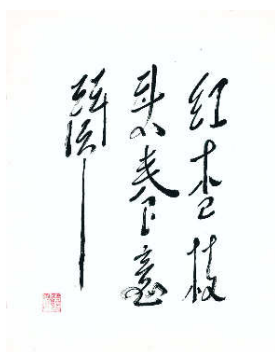 红杏枝
头春意
闹